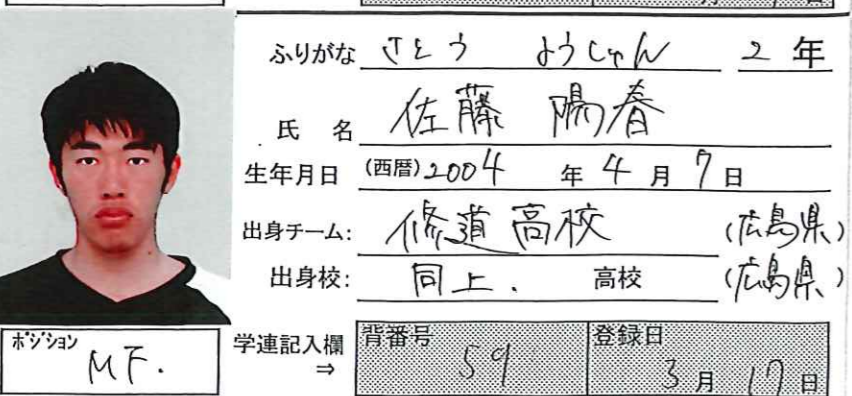 ふりがな さとう ようしゅん 2 年
氏 名 佐藤 陽春
生年月日 (西暦) 2004 年 4 月 7 日
出身チーム: 修道高校 (広島県)
出身校: 同上. 高校 (広島県)
ポジション MF.
学連記入欄 ⇒
背番号 59
登録日 3 月 17 日